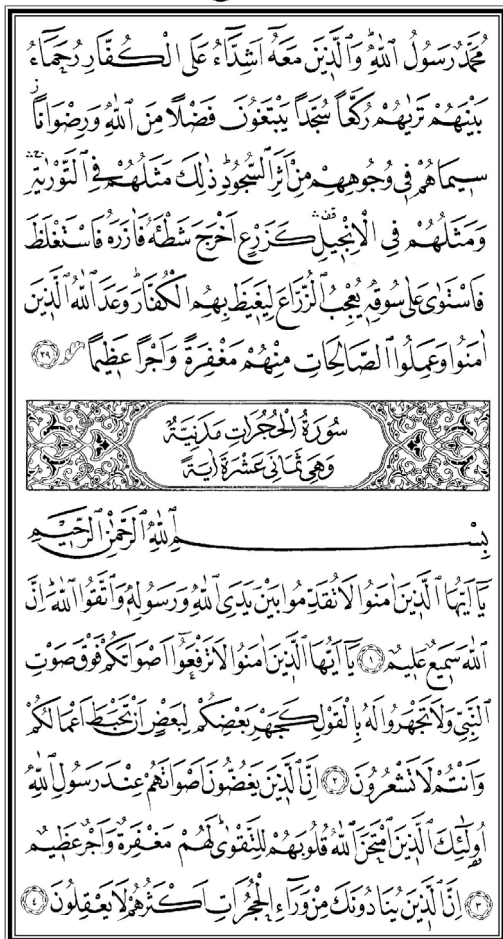 مُحَمَّدٌ رَسُولُ اللّٰهِۜ وَالَّذٖينَ مَعَهُٓ اَشِدَّٓاءُ عَلَى الْكُفَّارِ رُحَمَٓاءُ
بَيْنَهُمْ تَرٰيهُمْ رُكَّعاً سُجَّداً يَبْتَغُونَ فَضْلاً مِنَ اللّٰهِ وَرِضْوَاناًۘ
سٖيمَاهُمْ فٖي وُجُوهِهِمْ مِنْ اَثَرِ السُّجُودِۜ ذٰلِكَ مَثَلُهُمْ فِي التَّوْرٰيةِۚۛ
وَمَثَلُهُمْ فِي الْاِنْجٖيلِ۠ۛ كَزَرْعٍ اَخْرَجَ شَطْـَٔهُ فَاٰزَرَهُ فَاسْتَغْلَظَ
فَاسْتَوٰى عَلٰى سُوقِهٖ يُعْجِبُ الزُّرَّاعَ لِيَغٖيظَ بِهِمُ الْكُفَّارَۜ وَعَدَ اللّٰهُ الَّذٖينَ
اٰمَنُوا وَعَمِلُوا الصَّالِحَاتِ مِنْهُمْ مَغْفِرَةً وَاَجْراً عَظٖيماً ﴿٢٩﴾
سُورَةُ الْحُجُرَاتِ مَدَنِيَّةٌ
وَهِيَ ثَمَانِيَ عَشْرَةَ اٰيَةً
بِسْمِ اللّٰهِ الرَّحْمٰنِ الرَّحٖيمِ
يَٓا اَيُّهَا الَّذٖينَ اٰمَنُوا لَا تُقَدِّمُوا بَيْنَ يَدَيِ اللّٰهِ وَرَسُولِهٖ وَاتَّقُوا اللّٰهَۜ اِنَّ
اللّٰهَ سَمٖيعٌ عَلٖيمٌ ﴿١﴾ يَٓا اَيُّهَا الَّذٖينَ اٰمَنُوا لَا تَرْفَعُٓوا اَصْوَاتَكُمْ فَوْقَ صَوْتِ
النَّبِيِّ وَلَا تَجْهَرُوا لَهُ بِالْقَوْلِ كَجَهْرِ بَعْضِكُمْ لِبَعْضٍ اَنْ تَحْبَطَ اَعْمَالُكُمْ
وَاَنْتُمْ لَا تَشْعُرُونَ ﴿٢﴾ اِنَّ الَّذٖينَ يَغُضُّونَ اَصْوَاتَهُمْ عِنْدَ رَسُولِ اللّٰهِ
اُو۬لٰٓئِكَ الَّذٖينَ امْتَحَنَ اللّٰهُ قُلُوبَهُمْ لِلتَّقْوٰىۜ لَهُمْ مَغْفِرَةٌ وَاَجْرٌ عَظٖيمٌ
﴿٣﴾ اِنَّ الَّذٖينَ يُنَادُونَكَ مِنْ وَرَٓاءِ الْحُجُرَاتِ اَكْثَرُهُمْ لَا يَعْقِلُونَ ﴿٤﴾